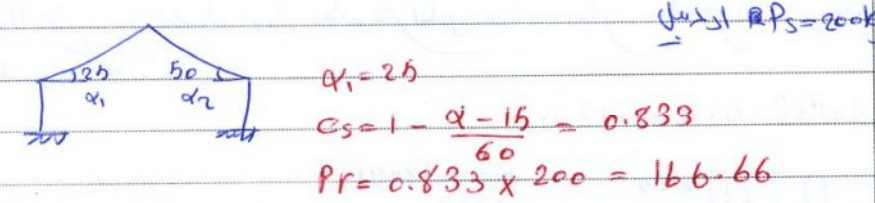 اردبیل Ps=200k
25 50
α₁ α₂
α₁=25
Cs=1-\frac{α-15}{60}=0.833
Pr=0.833×200=166.66